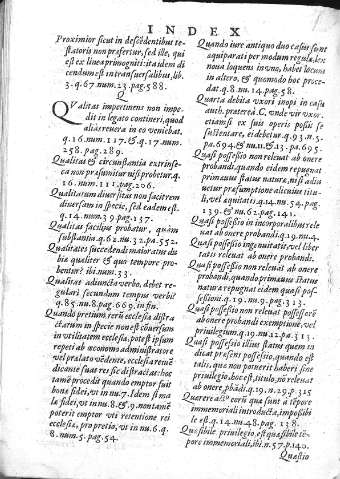 INDEX
Proximior sicut in descēdentibus te-
statoris non præfertur, sed ille, qui
est ex linea primogeniti: ita idem di
cendum est in transuersalibus, lib.
3. q. 67. num. 23. pag. 588.
Q
Qualitas impertinens non impe-
dit in legato cōtineri, quod
alia reuera in eo veniebat,
q. 16. num. 117. & q. 17. num.
258. pag. 289.
Qualitas & circunstantia extrinse-
ca non præsumitur nisi probetur, q.
16. num. 111. pag. 206.
Qualitatum diuersitas non facit rem
diuersam in specie, sed eadem est.
q. 14. num. 39. pag. 137.
Qualitas facilius probatur, quàm
substantia. q. 62. nu. 32. pa. 552.
Qualitates succedendi maioratus du
bia qualiter & quo tempore pro-
bentur? ibi num. 33.
Qualitas adiuncta verbo, debet re-
gulari secundum tempus verbi?
q. 85. nu. 8. pag. 669. in fin.
Quando pretium, rerū ecclesiæ distra
ctarum in specie non est cōuersum
in vtilitatem ecclesiæ, potest ipsum
repeti ab œconomo administratore
vel prælato vēdente, ecclesia remē
dicante suas res sic distractas: hoc
tamē procedit quando emptor fuit
bonæ fidei, vt in nu. 7. Idem si ma
læ fidei, vt in nu. 8. & 9. non tamē
poterit emptor vti retentione rei
ecclesiæ, pro pretio, vt in nu. 6. q.
8. num. 5. pag. 54.
Quando iure antiquo duo casus sunt
æquiparati per modum regulæ, lex
noua loquens in vno, habet locum
in altero. & quomodo hoc proce-
dat. q. 8. nu. 14. pag. 58.
Quarta debita vxori inopi in casu
auth. præterea. C. vnde vir & vxor.
etiamsi ex suis operis possit se
sustentare, ei debetur. q. 93. n. 5.
pa. 694. & nu. 11. & 13. pa. 695.
Quasi possessio non releuat ab onere
probandi, quando eidem repugnat
primæuus status naturæ, nisi adiu
uetur præsumptione alicuius titu-
li, vel æquitatis. q. 14. nu. 54. pag.
139. & nu. 62. pag. 141.
Quasi possessio in incorporalibus rele
uat ab onere probandi. q. 19. nu. 4.
Quasi possessio ingenuitatis, vel liber
tatis releuat ab onere probandi.
Quasi possessio non releuat ab onere
probandi, quando primæuus status
naturæ repugnat eidem quasi pos-
sessioni. q. 19. nu. 9. pag. 313.
Quasi possessio non releuat possessorē
ab onere probandi exemptionē, vel
priuilegium, q. 19. nu. 12. pa. 313.
Quasi possessio illius status quem in
dicat præsent possessio, quando est
talis, quæ non potuerit haberi sine
priuilegio, hoc est, titulo, nō releuat
ab onere pbādi. q. 19. n. 29. p. 315
Quærere actiō eorū quæ sunt a tēpore
immemoriali introducta, impossibi
le est. q. 14. nu. 48. pag. 138.
Quasibile priuilegio, est quasibile tē-
pore immemoriali, ibi. n. 57. p. 140.
Quæstio